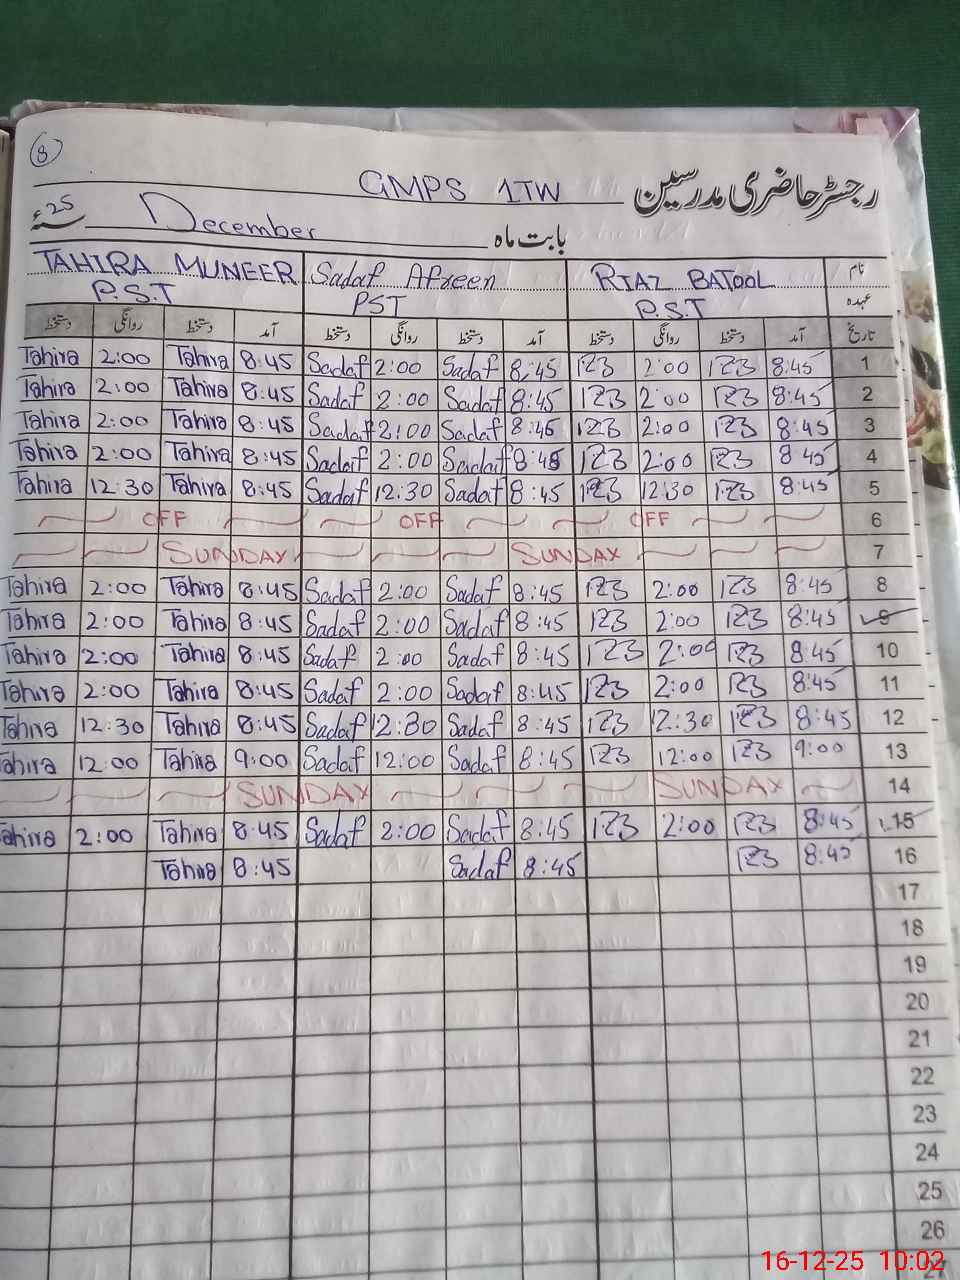 8
GMPS 1TW رجسٹر حاضری مدرسین
بابت ماہ December 25 سنہء
TAHIRA MUNEER Sadaf Afreen RIAZ BATOOL نام
P.S.T PST P.S.T عہدہ
دستخط روانگی دستخط آمد دستخط روانگی دستخط آمد دستخط روانگی دستخط آمد تاریخ
Tahira 2:00 Tahira 8:45 Sadaf 2:00 Sadaf 8:45 2:00 8:45 1
Tahira 2:00 Tahira 8:45 Sadaf 2:00 Sadaf 8:45 2:00 8:45 2
Tahira 2:00 Tahira 8:45 Sadaf 2:00 Sadaf 8:45 2:00 8:45 3
Tahira 2:00 Tahira 8:45 Sadaf 2:00 Sadaf 8:45 2:00 8 45 4
Tahira 12:30 Tahira 8:45 Sadaf 12:30 Sadaf 8:45 12:30 8:45 5
OFF OFF OFF 6
SUNDAY SUNDAY 7
Tahira 2:00 Tahira 8:45 Sadaf 2:00 Sadaf 8:45 2:00 8:45 8
Tahira 2:00 Tahira 8:45 Sadaf 2:00 Sadaf 8:45 2:00 8:45 9
Tahira 2:00 Tahira 8:45 Sadaf 2:00 Sadaf 8:45 2:00 8:45 10
Tahira 2:00 Tahira 8:45 Sadaf 2:00 Sadaf 8:45 2:00 8:45 11
Tahira 12:30 Tahira 8:45 Sadaf 12:30 Sadaf 8:45 12:30 8:45 12
Tahira 12:00 Tahira 9:00 Sadaf 12:00 Sadaf 8:45 12:00 9:00 13
SUNDAY SUNDAY 14
Tahira 2:00 Tahira 8:45 Sadaf 2:00 Sadaf 8:45 2:00 8:45 15
Tahira 8:45 Sadaf 8:45 8:45 16
17
18
19
20
21
22
23
24
25
26
27
16-12-25 10:02